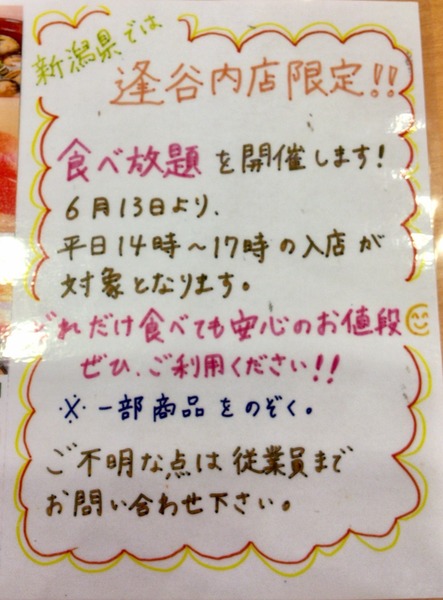 新潟県では
逢谷内店限定!!
食べ放題を開催します!
6月13日より、
平日14時～17時の入店が
対象となります。
どれだけ食べても安心のお値段
ぜひ、ご利用ください!!
※一部商品をのぞく。
ご不明な点は従業員まで
お問い合わせ下さい。